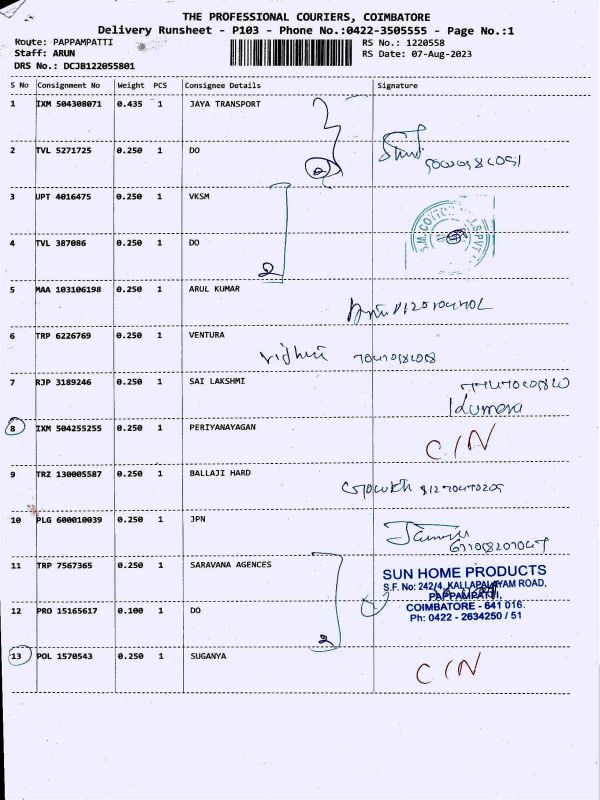 THE PROFESSIONAL COURIERS, COIMBATORE
Delivery Runsheet - P103 - Phone No.:0422-3505555 - Page No.:1
Route: PAPPAMPATTI RS No.: 1220558
Staff: ARUN RS Date: 07-Aug-2023
DRS No.: DCJB122055801
S No Consignment No Weight PCS Consignee Details Signature
1 IXM 504308071 0.435 1 JAYA TRANSPORT
2 TVL 5271725 0.250 1 DO
3 UPT 4016475 0.250 1 VKSM
4 TVL 387086 0.250 1 DO
2
5 MAA 103106198 0.250 1 ARUL KUMAR
6 TRP 6226769 0.250 1 VENTURA
7 RJP 3189246 0.250 1 SAI LAKSHMI
8 IXM 504255255 0.250 1 PERIYANAYAGAN
C/N
9 TRZ 130005587 0.250 1 BALLAJI HARD
10 PLG 600010039 0.250 1 JPN
11 TRP 7567365 0.250 1 SARAVANA AGENCES
SUN HOME PRODUCTS
S.F. No: 242/4, KALLAPALAYAM ROAD,
PAPPAMPATTI,
12 PRO 15165617 0.100 1 DO
COIMBATORE - 641 016.
Ph: 0422 - 2634250 / 51
2
13 POL 1570543 0.250 1 SUGANYA
C/N